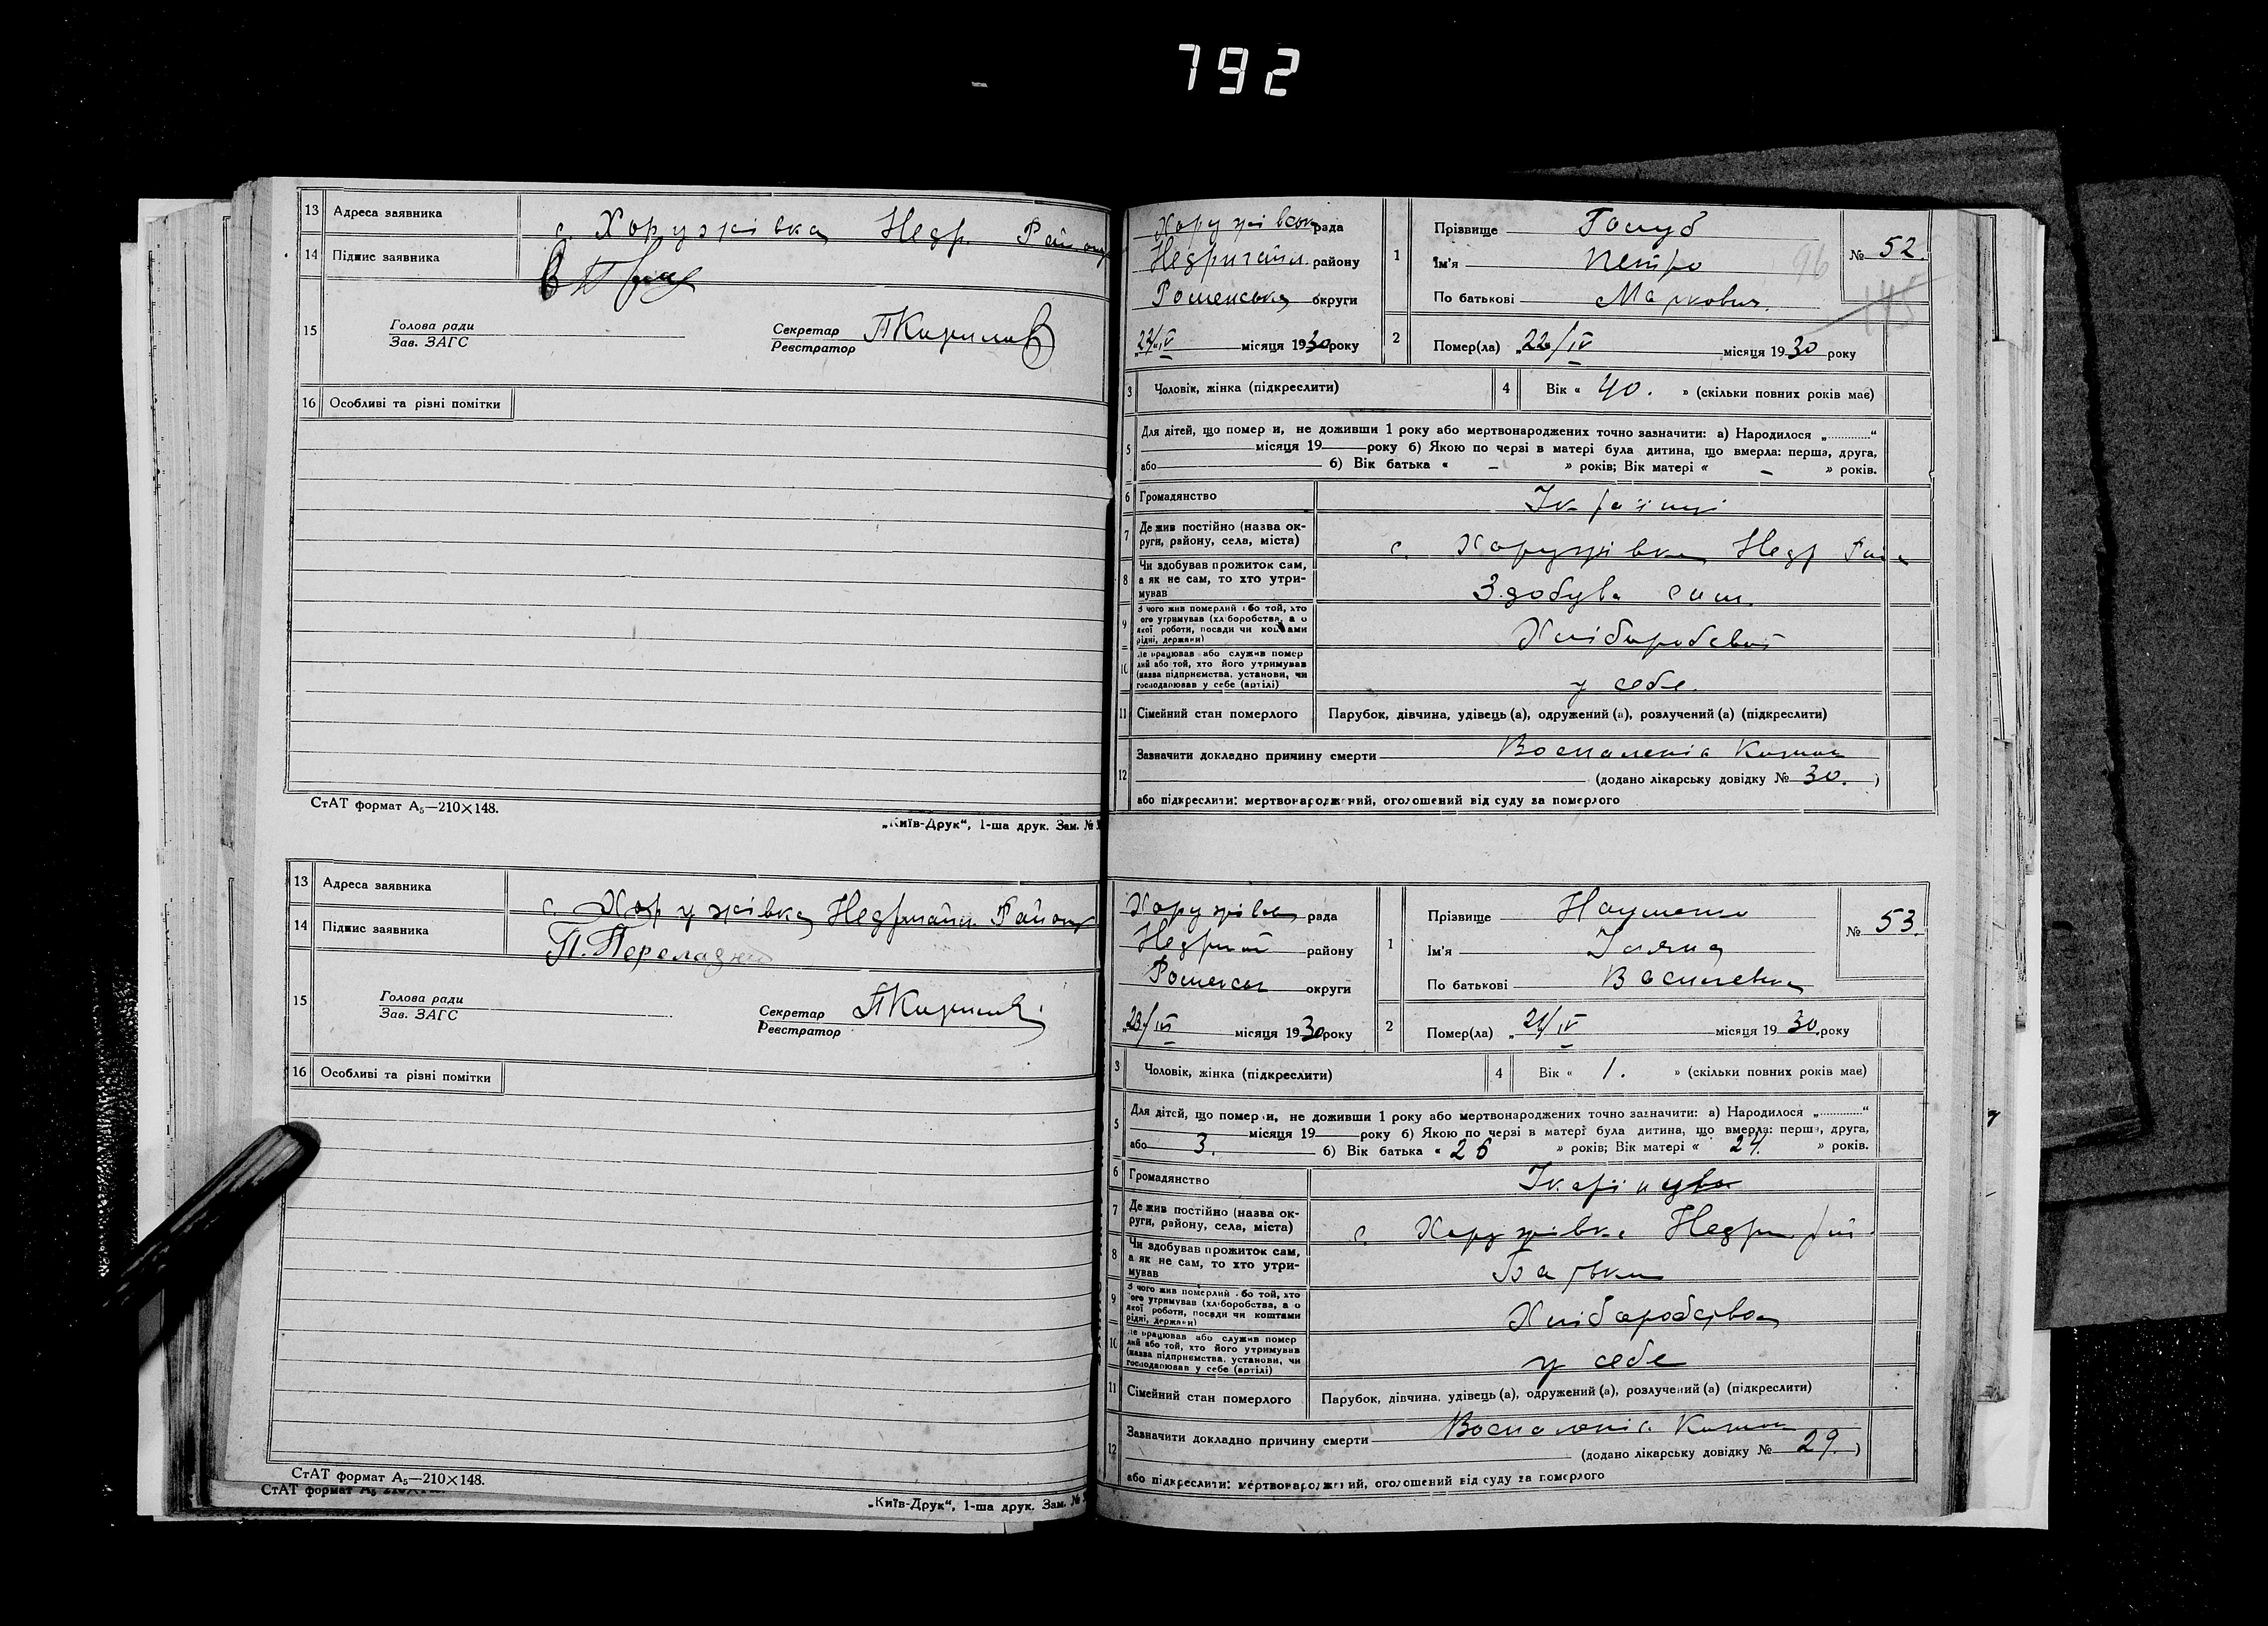 792
13 Адреса заявника с. Хоружівка Недр. Району
14 Підпис заявника
15 Голова ради
Зав. ЗАГС
Секретар
Реєстратор ПКирилов
16 Особливі та різні помітки
СтАТ формат А₅—210×148.
„Київ-Друк“, 1-ша друк. Зам. №
13 Адреса заявника с. Хоружівка Недригайл. Району
14 Підпис заявника П. Переладн
15 Голова ради
Зав. ЗАГС
Секретар
Реєстратор ПКирилов
16 Особливі та різні помітки
СтАТ формат А₅—210×148.
СтАТ формат А₅
„Київ-Друк“, 1-ша друк. Зам. №
Хоружівськ рада
Недригайл. району
Роменська округи
„23/IV місяця 1930 року
1 Прізвище Голуб
Ім'я Петро
По батькові Маркович
№ 52.
96
145
2 Помер(ла) „22/IV місяця 1930 року
3 Чоловік, жінка (підкреслити)
4 Вік « 40. » (скільки повних років має)
5 Для дітей, що помер и, не доживши 1 року або мертвонароджених точно зазначити: а) Народилося „............“
місяця 19 року б) Якою по черзі в матері була дитина, що вмерла: перша, друга,
або б) Вік батька « – » років; Вік матері « – » років.
6 Громадянство
7 Де жив постійно (назва ок-
руги, району, села, міста) с. Хоружівка Недр Рай
8 Чи здобував прожиток сам,
а як не сам, то хто утри-
мував Здобува сам.
9 З чого жив померлий або той, хто
його утримував (хліборобства, а о
якої роботи, посади чи коштами
рідні, держави) Хліборобства
10 Де працював або служив помер
лий або той, хто його утримував
(назва підприємства, установи, чи
господарював у себе (артілі) у себе.
11 Сімейний стан померлого Парубок, дівчина, удівець (а), одружений (а), розлучений (а) (підкреслити)
12 Зазначити докладно причину смерти Воспаленіє Кишок
(додано лікарську довідку № 30. )
або підкреслити: мертвонароджений, оголошений від суду за померлого
Хоружівськ рада
Недригай району
Роменськ округи
„23/IV місяця 1930 року
1 Прізвище Науменко
Ім'я Уляна
По батькові Василевна
№ 53.
2 Помер(ла) „21/IV місяця 1930 року
3 Чоловік, жінка (підкреслити)
4 Вік « 1. » (скільки повних років має)
5 Для дітей, що помер и, не доживши 1 року або мертвонароджених точно зазначити: а) Народилося „............“
місяця 19 року б) Якою по черзі в матері була дитина, що вмерла: перша, друга,
або 3. б) Вік батька « 26 » років; Вік матері « 24. » років.
6 Громадянство
7 Де жив постійно (назва ок-
руги, району, села, міста) с. Хоружівка Недриг рай
8 Чи здобував прожиток сам,
а як не сам, то хто утри-
мував Батьки
9 З чого жив померлий або той, хто
його утримував (хліборобства, а о
якої роботи, посади чи коштами
рідні, держави) Хліборобства
10 Де працював або служив помер
лий або той, хто його утримував
(назва підприємства, установи, чи
господарював у себе (артілі) у себе
11 Сімейний стан померлого Парубок, дівчина, удівець (а), одружений (а), розлучений (а) (підкреслити)
12 Зазначити докладно причину смерти Воспаленіє Кишок
(додано лікарську довідку № 29. )
або підкреслити: мертвонароджений, оголошений від суду за померлого